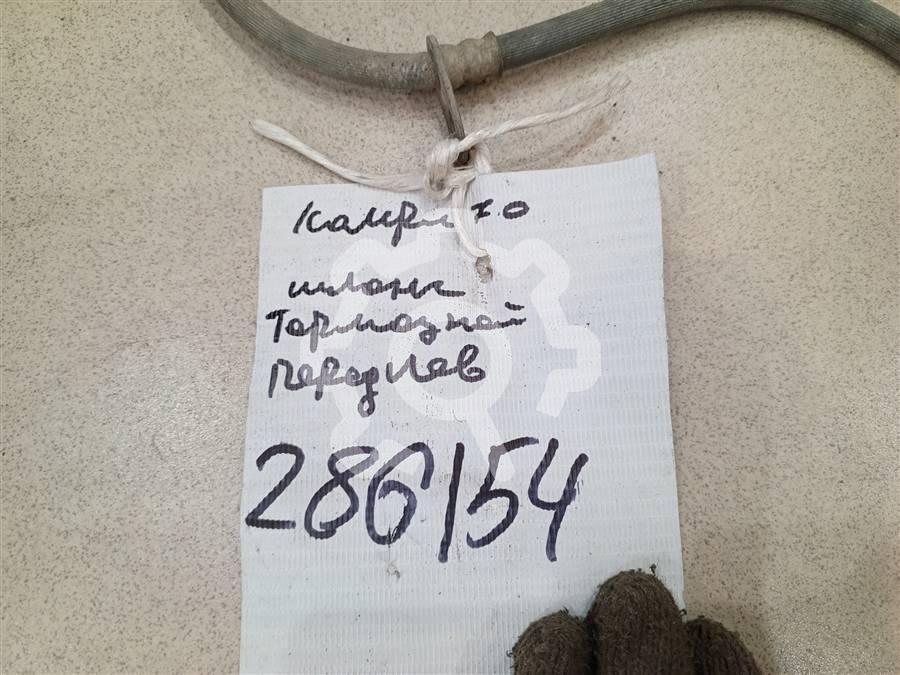 Камри 70
шланг
Тормозной
перед лев
286154